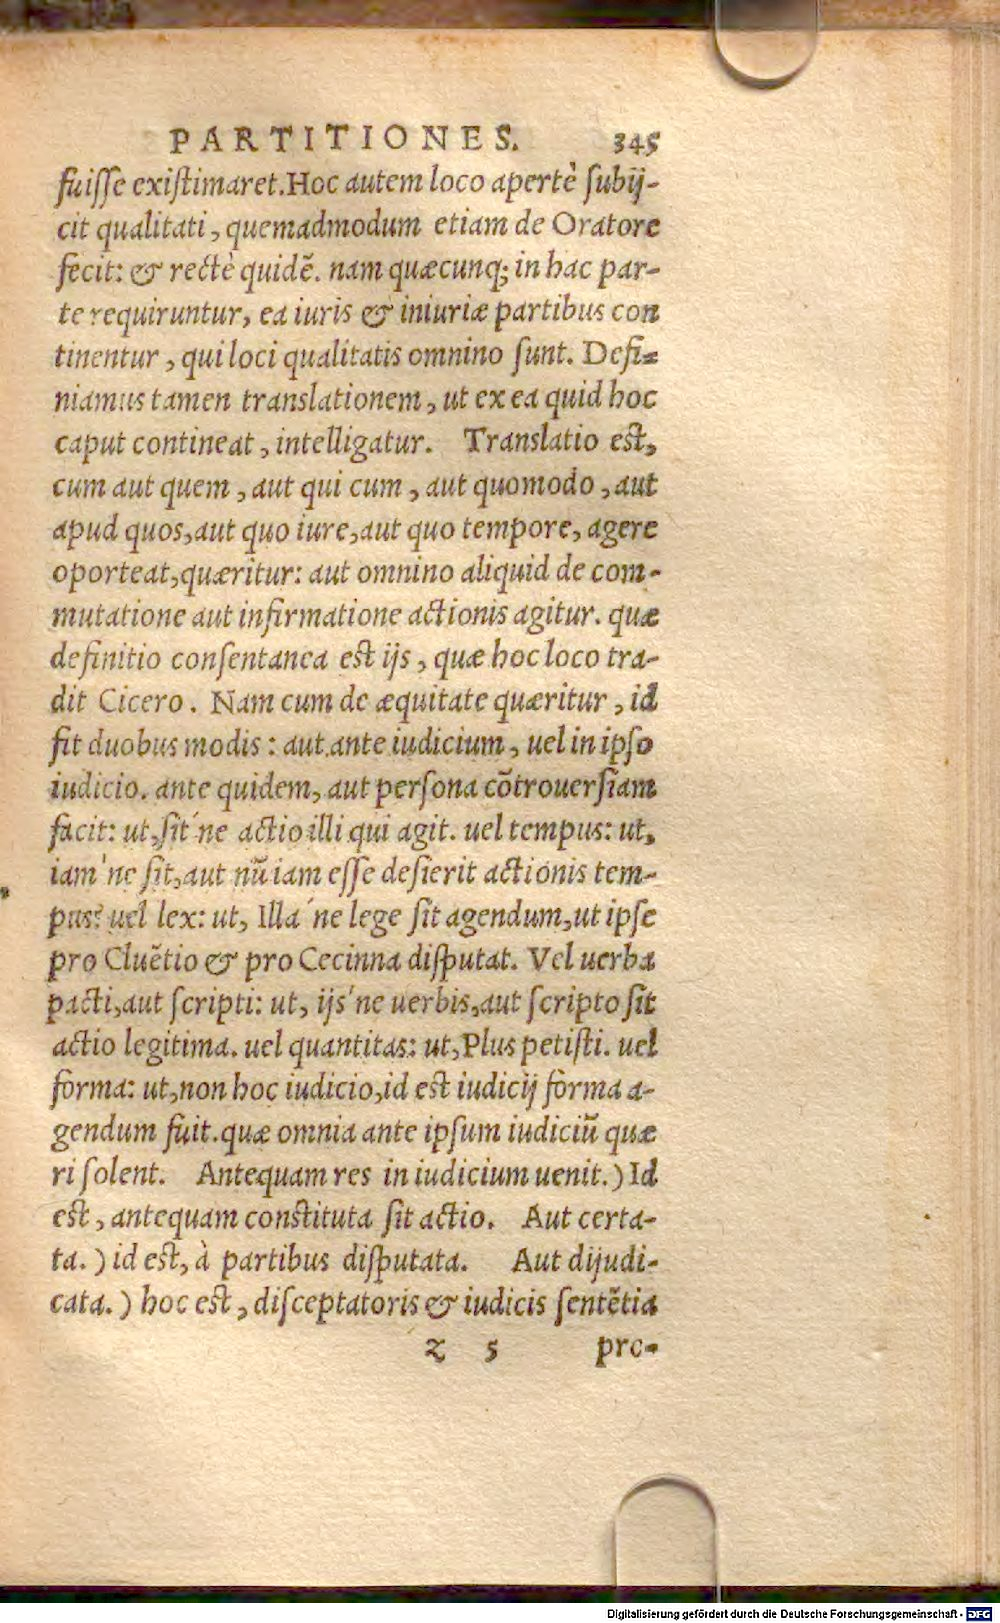 PARTITIONES. 345
fuisse existimaret. Hoc autem loco apertè subij-
cit qualitati, quemadmodum etiam de Oratore
fecit: & rectè quidẽ. nam quæcunq; in hac par-
te requiruntur, ea iuris & iniuriæ partibus con
tinentur, qui loci qualitatis omnino sunt. Defi-
niamus tamen translationem, ut ex ea quid hoc
caput contineat, intelligatur. Translatio est,
cum aut quem, aut qui cum, aut quomodo, aut
apud quos, aut quo iure, aut quo tempore, agere
oporteat, quæritur: aut omnino aliquid de com-
mutatione aut infirmatione actionis agitur. quæ
definitio consentanea est ijs, quæ hoc loco tra-
dit Cicero. Nam cum de æquitate quæritur, id
fit duobus modis: aut ante iudicium, uel in ipso
iudicio. ante quidem, aut persona cõtrouersiam
facit: ut, sit ́ne actio illi qui agit. uel tempus: ut,
iam ́ne sit, aut nũ iam esse desierit actionis tem-
pus? uel lex: ut, Illa ́ne lege sit agendum, ut ipse
pro Cluẽtio & pro Cecinna disputat. Vel uerba
pacti, aut scripti: ut, ijs ́ne uerbis, aut scripto sit
actio legitima. uel quantitas: ut, Plus petisti. uel
forma: ut, non hoc iudicio, id est iudicij forma a-
gendum fuit. quæ omnia ante ipsum iudiciũ quæ
ri solent. Antequam res in iudicium uenit.) Id
est, antequam constituta sit actio. Aut certa-
ta.) id est, à partibus disputata. Aut dijudi-
cata.) hoc est, disceptatoris & iudicis sentẽtia
z 5 pro-
Digitalisierung gefördert durch die Deutsche Forschungsgemeinschaft - DFG